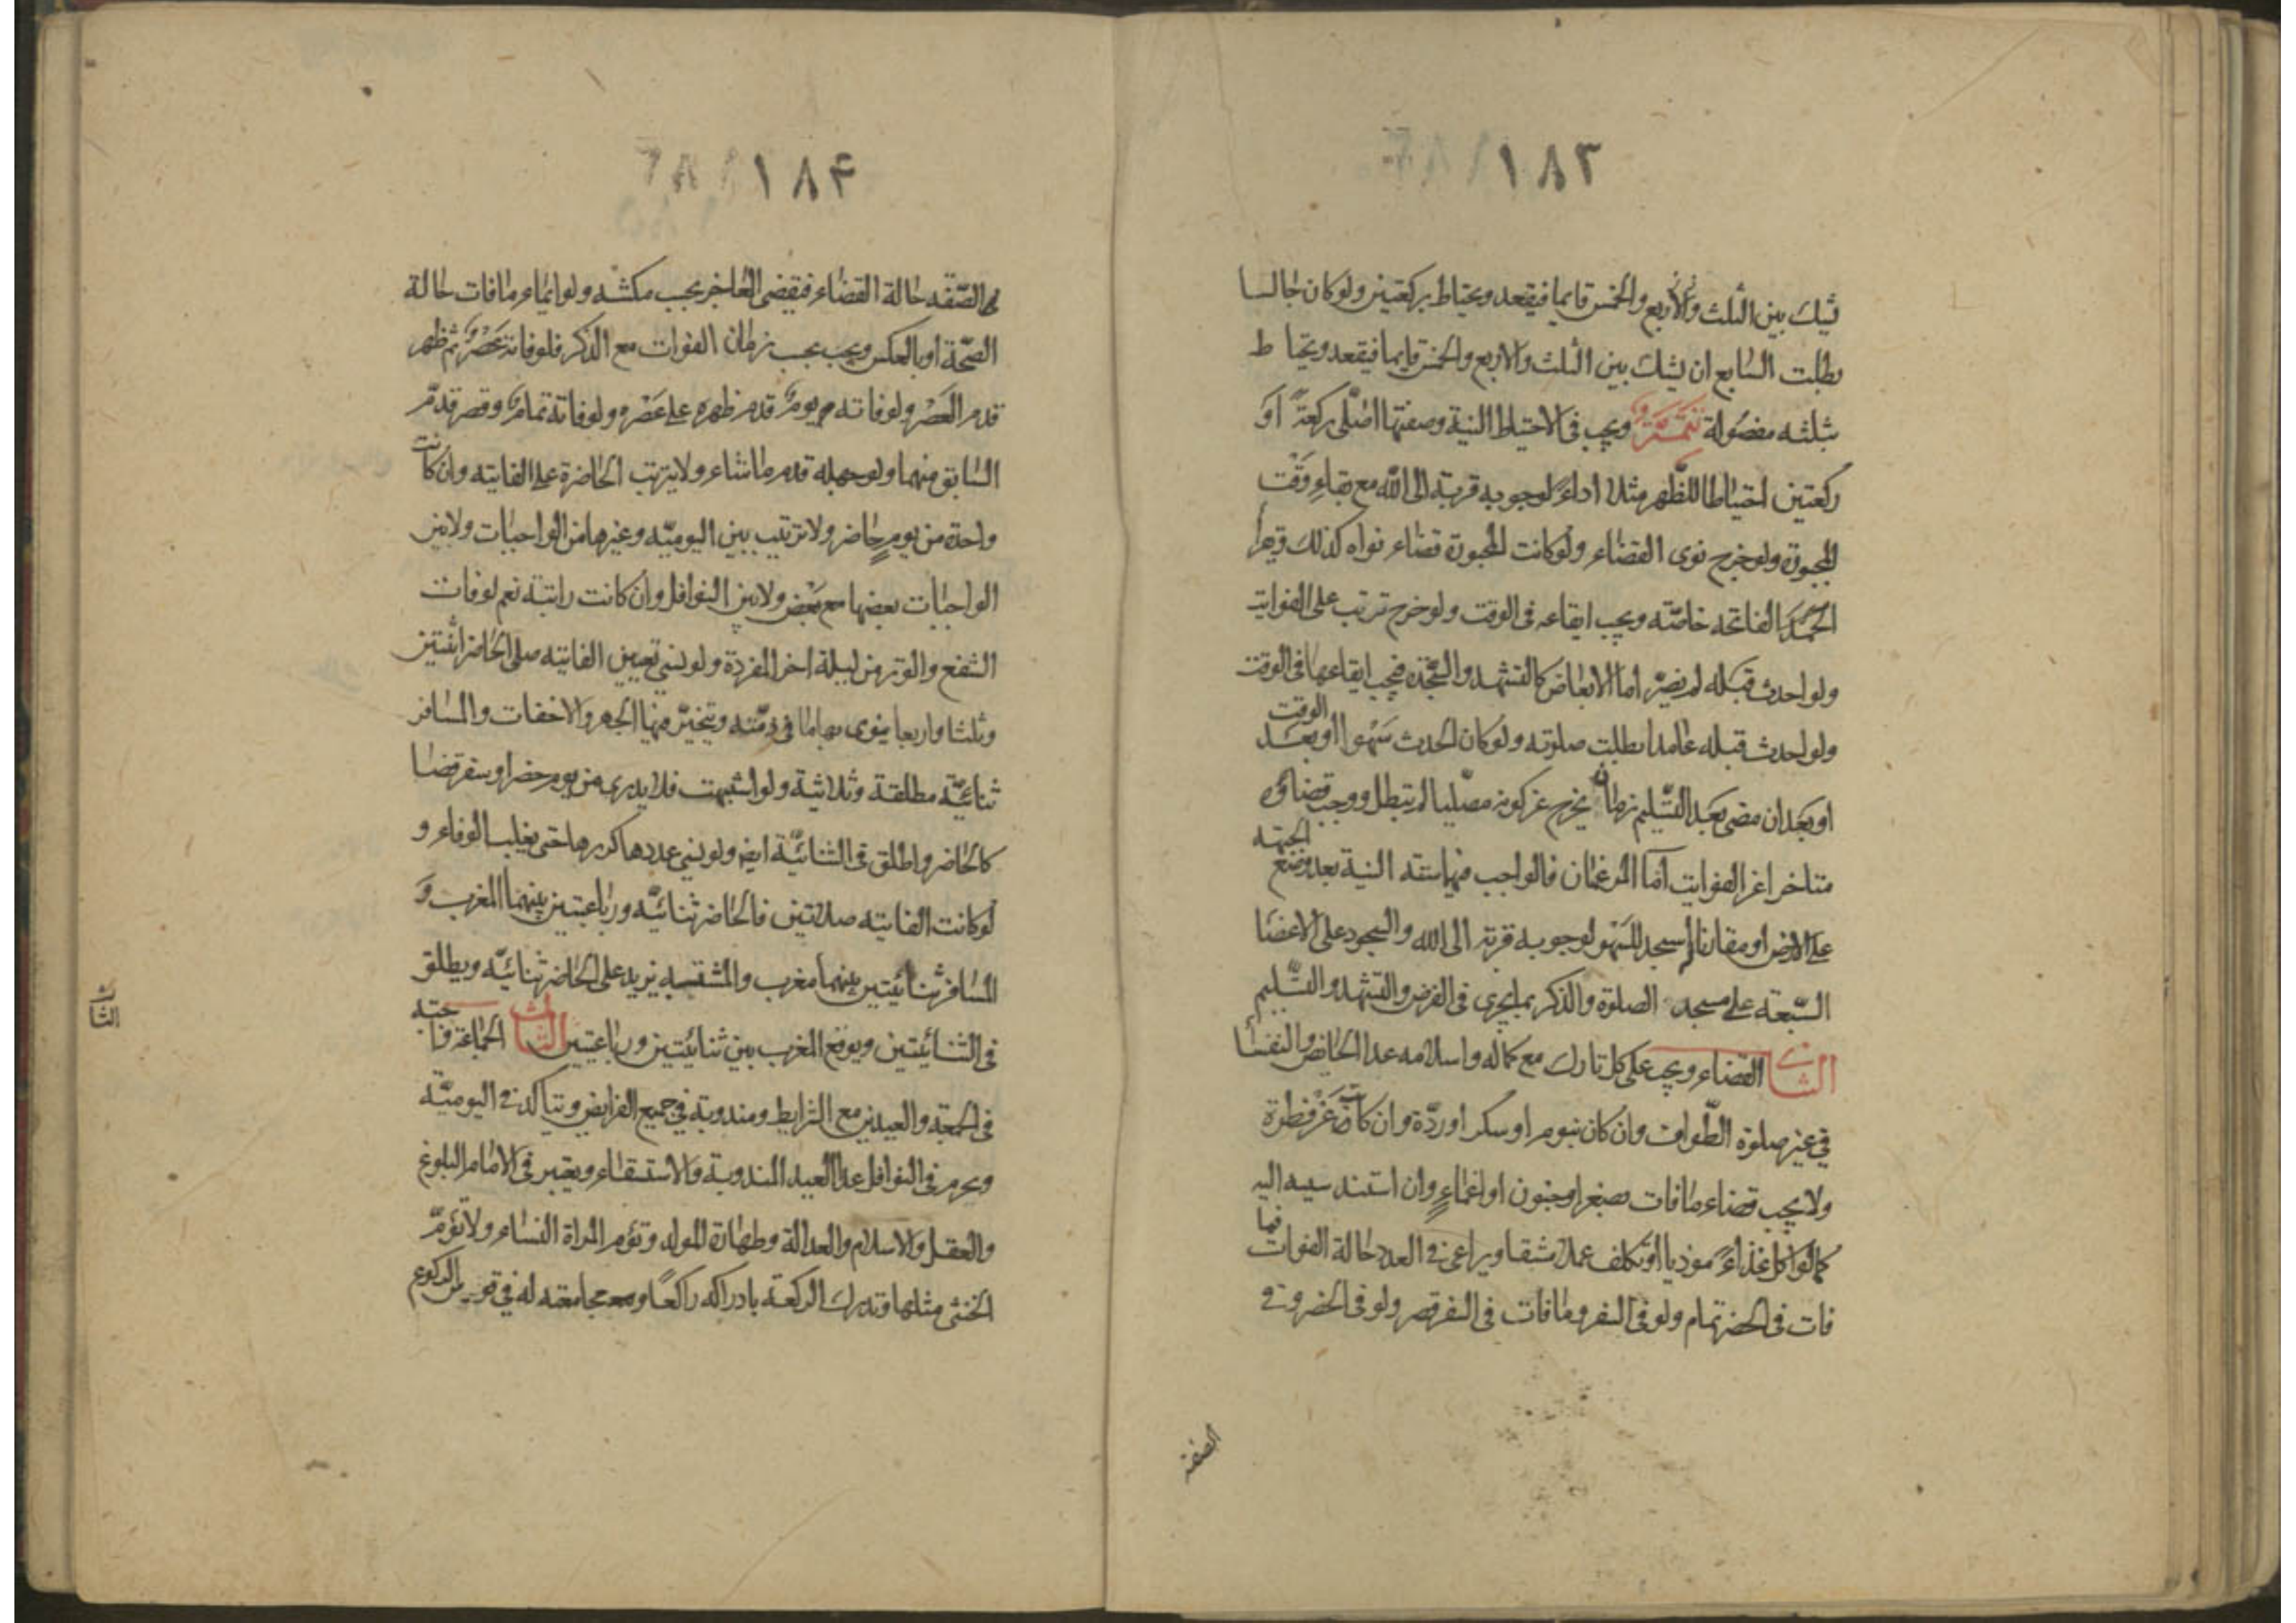 ١٨٣
يشك بين الثلث والاربع والخمس قايما فيقعد ويحتاط بركعتين ولو كان جالسا
بطلت السابع ان يشك بين الثلث والاربع والخمس قايما فيقعد ويحتاط
بثلثه مفصوله تتمة ويجب فى الاحتياط النية وصفتها اصلى ركعة او
ركعتين احتياطا للظهر مثلا اداء لوجوبه قربة الى الله مع بقاء وقت
المجبورة ولو خرج نوى القضاء ولو كانت المجبورة قضاء نواه كذلك وقراءة
الحمد الفاتحه خاصّة ويجب ايقاعه فى الوقت ولو خرج ترتب على الفوايت
ولو احدث قبله لم يضرّ اما الابعاض كالتشهد والسجدة فيجب ايقاعها فى الوقت
ولو احدث قبله عامدا بطلت صلوته ولو كان الحدث سهوا او بعد الوقت
او بعد ان مضى بعد التسليم زمان يخرج عن كونه مصليا لم تبطل ووجب قضاؤه
متاخرا عن الفوايت اما المرغمتان فالواجب فيها ستة النية بعد وضع الجبهة
على الارض او مقارنا اسجد للسهو لوجوبه قربة الى الله والسجود على الاعضا
السبعة على مسجد الصلوة والذكر بما يجرى فى الفرض والتشهد والتسليم
الثانى القضاء ويجب على كل تارك مع كماله واسلامه عدا الحايض والنفسا
فى غير صلوة الطواف وان كان بنوم او سكر او ردّة وان كانت عن فطرة
ولا يجب قضاء ما فات بصغر او جنون او اغماء وان استند سببه اليه
كما لو اكل غذاء موذيا او تكلف عملا مشقا ويراعى فى العدد حالة الفوات فما
فات فى الحضر تمام ولو فى السفر وما فات فى السفر قصر ولو فى الحضر وفى
الصفة
١٨۴
الصّفه حالة القضاء فيقضى العاجز بحسب مكنته ولو ايماء ما فات حالة
الصحّة او بالعكس ويجب بحسب زمان الفوات مع الذكر فلو فاته عصر ثم ظهر
قدم العصر ولو فاته يوم قدم ظهره على عصره ولو فاته تمام وقصر قدّم
السابق منهما ولو جهله قدم ما شاء ولا يترتب الحاضرة على الفايته وان كانت
واحدة من يوم حاضر ولا ترتيب بين اليوميّه وغيرها من الواجبات ولا بين
الواجبات بعضها مع بعض ولا بين النوافل وان كانت راتبة نعم لو فات
الشفع والوتر من ليلة اخر المفردة ولو نسى تعيين الفايته صلى الحاضر اثنتين
وثلثا واربعا ينوى بها ما فى ذمّته ويتخيّر فيها الجهر والاخفات والمسافر
ثنائيّة مطلقة وثلاثية ولو اشتبهت فلا يدرى من يوم حضر او سفر قضا
كالحاضر واطلق فى الثنائيّة ايضا ولو نسى عددها كررها حتى يغلب الوفاء و
لو كانت الفايته صلاتين فالحاضر ثنائيّه ورباعيتين بينهما المغرب و
المسافر ثنائيتين بينهما مغرب والمشتبه يزيد على الحاضر ثنائيّه ويطلق
فى الثنائيتين ويوقع المغرب بين ثنائيتين ورباعيتين الثالث الجماعة واجبه
فى الجمعة والعيدين مع الشرايط ومندوبة فى جميع الفرايض ويتاكد فى اليوميّه
ويحرم فى النوافل عدا العيد المندوبة والاستسقاء ويعتبر فى الامام البلوغ
والعقل والاسلام والعدالة وطهارة المولد وتؤم المراة النساء ولا تؤمّ
الخنثى مثلها وتدرك الركعة بادراكه راكعًا ومجامعته له فى قوس الركوع